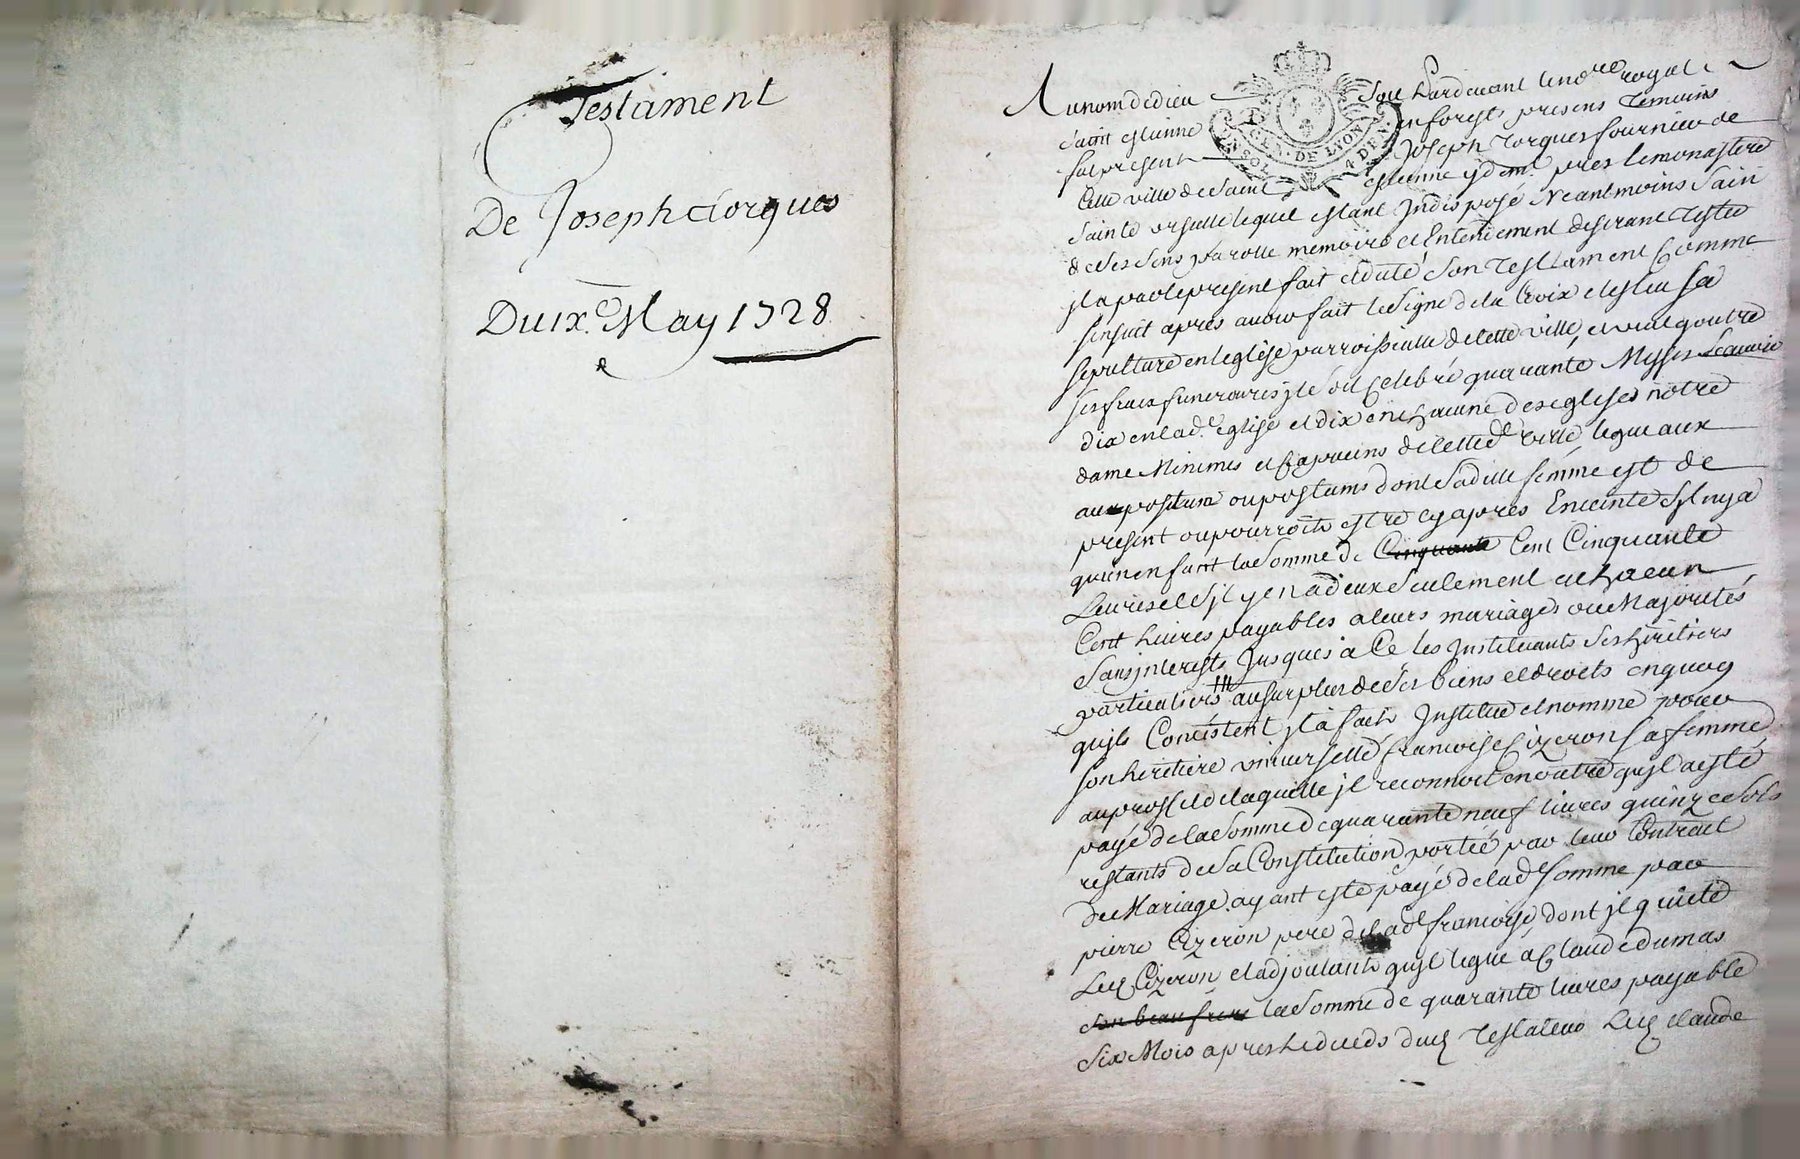 Testament
De Joseph ciorques
Du ix.e May 1728
Au nom de dieu Soit Pardevant le no.re royal
a saint estienne en forests presens Temoins
fut present Joseph Jorques fournieu de
Cette ville de Saint estienne y dem.t pres le monastere
Sainte ursulle lequel estant Indisposé Neantmoins Sain
de ses sens parolle memoire et Entendement desirant Tester
il a par le present fait et dicté son Testament Comme
sensuit apres avoir fait le signe de la Croix eleslu sa
sepulture en leglise parroissialle de cette ville, et veut qoutre
ses fraix funeraires il soit Celebré quarante Messes Scavoir
dix en lad.e eglise et dix en chacune des eglises notre
dame Minimes et Capucins de cette d.e ville, legue aux
aux postume ou postums dont sa ditte femme est de
present ou pourroit estre cy apres Enceinte, sil ny a
qu'un enfant la somme de Cinquante Cent Cinquante
Livres et sil y en a deux seulement a chacun
Cent Livres payables a leurs mariages ou Majorités
sans interests jusques a Ce les Instituants ses heritiers
particuliers au surplus de ses biens et droits en quoy
quils Concistent il a fait Institue et nomme pour
son heritiere universelle francoise Cizeron sa femme
au proffit de laquelle il reconnoit en outre quil a esté
payé de la somme de quarante neuf livres quinze sols
restants de sa Constitution portée par leur Contract
de Mariage ayant esté payé de lad.e somme par
pierre Cizeron pere de lad.e francoise, dont il quitte
Led. Cizeron et adjoutant quil legue a Claude dumas
son beau frere la somme de quarante livres payable
Six Mois apres le deceds dud. Testateur Led. Claude
GEN. DE LYON
4 DEN.